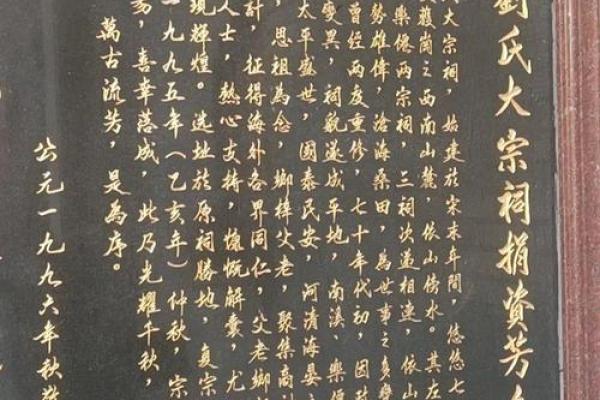 劉氏大宗祠捐資芳
大宗祠，始建於宋末年間，悠悠七
崗之西南山麓，依山傍水。其左
樂僊兩宗祠，三祠次遞相連，依山
勢雄偉，滄海桑田，為世事之多變
曾經兩度重修，七十年代初，因
變異，祠貌遂成平地，南溪、樂僊
太平盛世，國泰民安，河清海晏
，思祖為念，鄉梓父老，聚集商
計，征得海外各界同仁，父老鄉
人士，熱心支持，慷慨解囊，尤
現輝煌。选址於原祠勝地，复宗
一九九五年（乙亥年）仲秋，宗
易，喜幸落成，此乃光耀千秋，
萬古流芳，是為序。
公元一九九六年秋